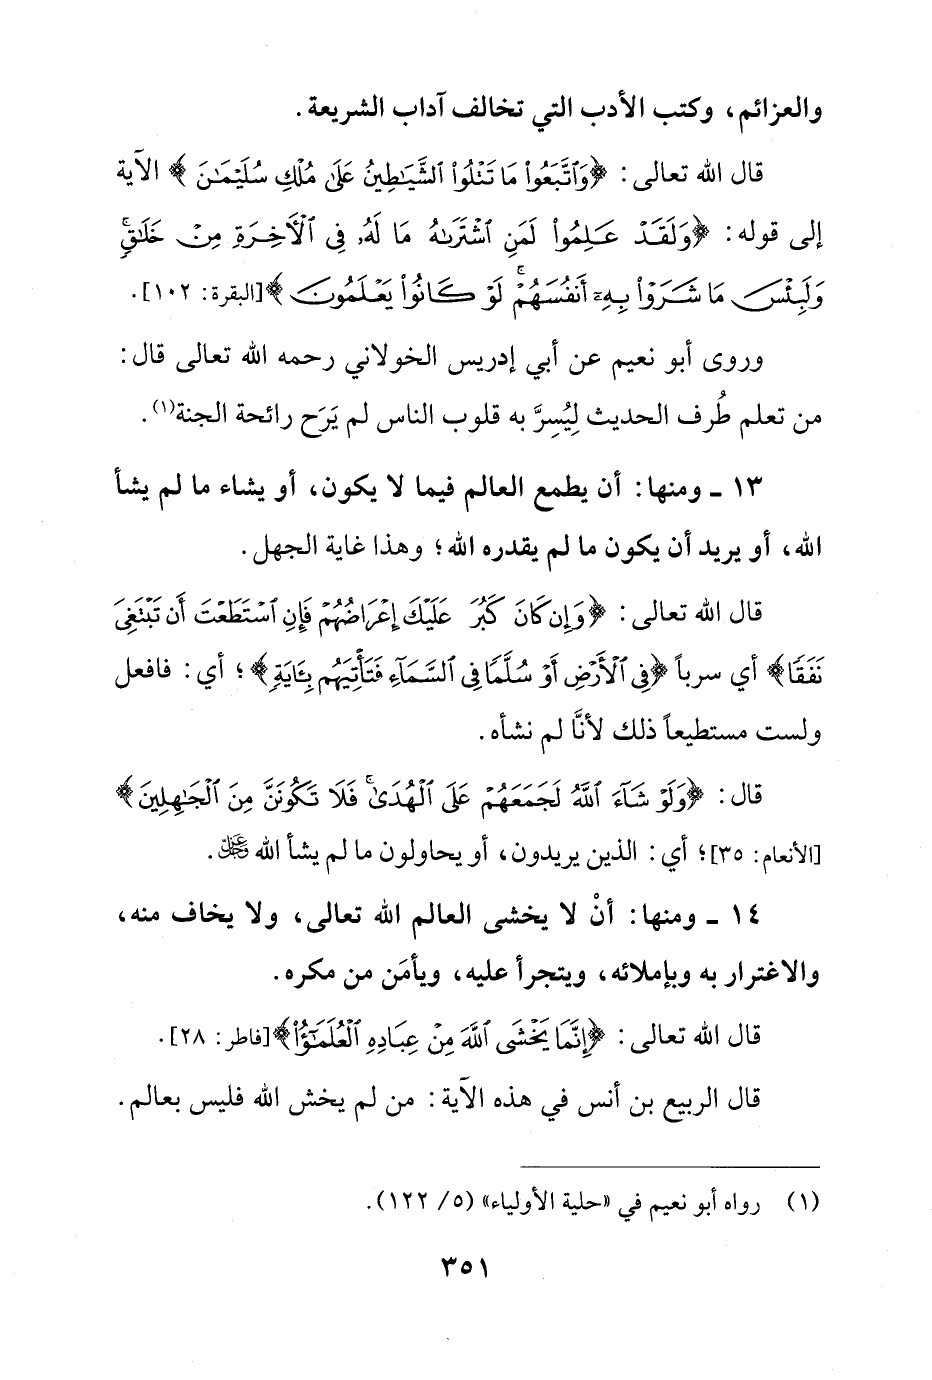 والعزائم، وكتب الأدب التي تخالف آداب الشريعة.
قال الله تعالى: ﴿وَٱتَّبَعُوا۟ مَا تَتْلُوا۟ ٱلشَّيَـٰطِينُ عَلَىٰ مُلْكِ سُلَيْمَـٰنَ﴾ الآية
إلى قوله: ﴿وَلَقَدْ عَلِمُوا۟ لَمَنِ ٱشْتَرَىٰهُ مَا لَهُۥ فِى ٱلْـَٔاخِرَةِ مِنْ خَلَـٰقٍۚ
وَلَبِئْسَ مَا شَرَوْا۟ بِهِۦٓ أَنفُسَهُمْۚ لَوْ كَانُوا۟ يَعْلَمُونَ﴾ [البقرة: ١٠٢].
وروى أبو نعيم عن أبي إدريس الخولاني رحمه الله تعالى قال:
من تعلم طُرف الحديث لِيُسِرَّ به قلوب الناس لم يَرَح رائحة الجنة(١).
١٣ - ومنها: أن يطمع العالم فيما لا يكون، أو يشاء ما لم يشأ
الله، أو يريد أن يكون ما لم يقدره الله؛ وهذا غاية الجهل.
قال الله تعالى: ﴿وَإِن كَانَ كَبُرَ عَلَيْكَ إِعْرَاضُهُمْ فَإِنِ ٱسْتَطَعْتَ أَن تَبْتَغِىَ
نَفَقًا﴾ أي سرباً ﴿فِى ٱلْأَرْضِ أَوْ سُلَّمًا فِى ٱلسَّمَآءِ فَتَأْتِيَهُم بِـَٔايَةٍ﴾؛ أي: فافعل
ولست مستطيعاً ذلك لأنَّا لم نشأه.
قال: ﴿وَلَوْ شَآءَ ٱللَّهُ لَجَمَعَهُمْ عَلَى ٱلْهُدَىٰۚ فَلَا تَكُونَنَّ مِنَ ٱلْجَـٰهِلِينَ﴾
[الأنعام: ٣٥]؛ أي: الذين يريدون، أو يحاولون ما لم يشأ الله ﷻ.
١٤ - ومنها: أنْ لا يخشى العالم الله تعالى، ولا يخاف منه،
والاغترار به وبإملائه، ويتجرأ عليه، ويأمَن من مكره.
قال الله تعالى: ﴿إِنَّمَا يَخْشَى ٱللَّهَ مِنْ عِبَادِهِ ٱلْعُلَمَـٰٓؤُا۟﴾ [فاطر: ٢٨].
قال الربيع بن أنس في هذه الآية: من لم يخش الله فليس بعالم.
(١) رواه أبو نعيم في «حلية الأولياء» (٥/ ١٢٢).
٣٥١